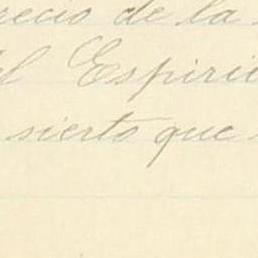 recio de la
el Espiri
sierto que